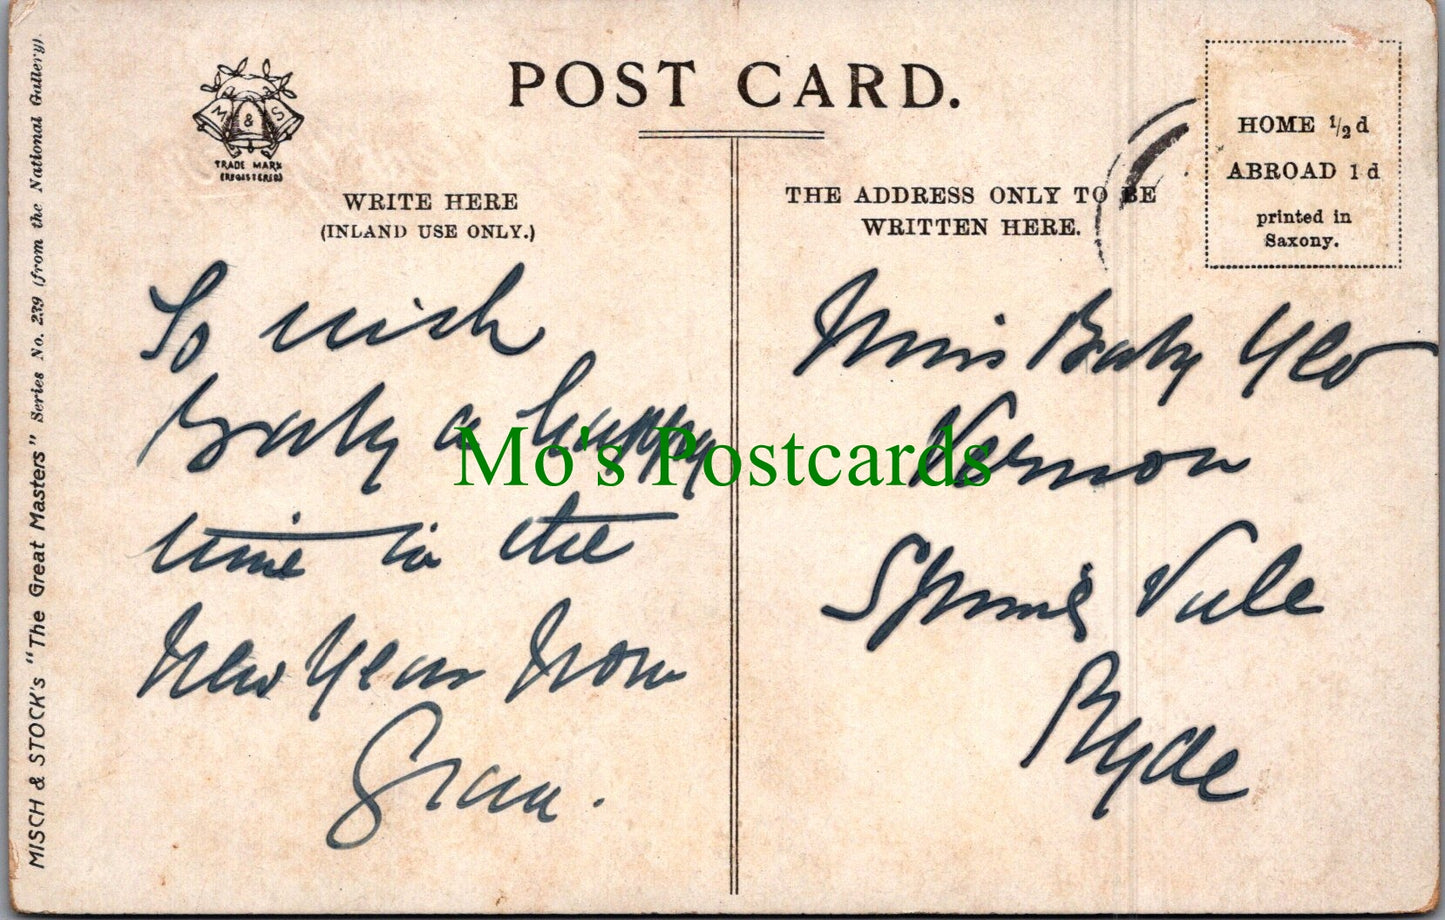 MISCH & STOCK's "The Great Masters" Series No. 239 (from the National Gallery)
M & S
TRADE MARK
(REGISTERED)
POST CARD.
WRITE HERE
(INLAND USE ONLY.)
To wish
Baby a happy
time in the
New Year from
Gran.
THE ADDRESS ONLY TO BE
WRITTEN HERE.
HOME 1/2d
ABROAD 1d
printed in
Saxony.
Miss Baby Yeo
Vernon
Spring Vale
Ryde
Mo's Postcards